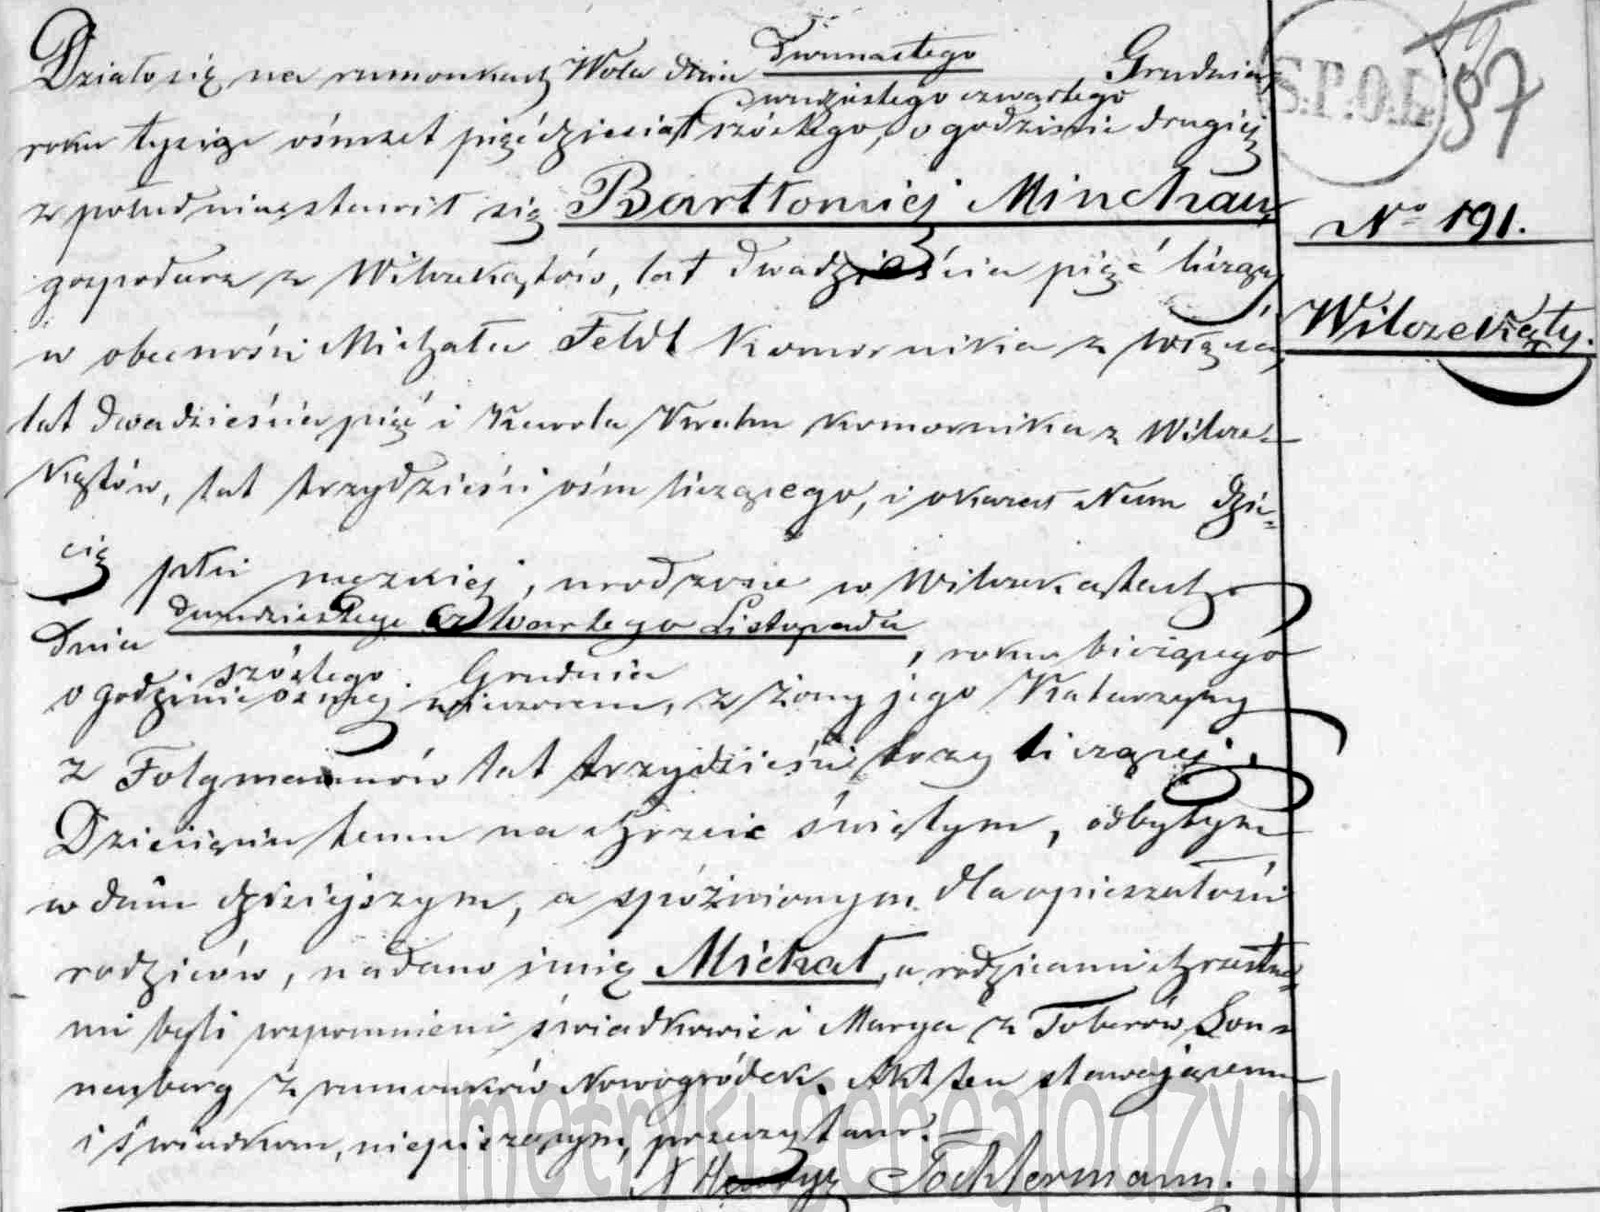 Działo się na rumunkach Wola dnia dwunastego Grudnia
dwudziestego czwartego
roku tysiąc ośmset pięćdziesiąt szóstego, o godzinie drugiej
z południa, stawił się Bartłomiej Minchau,
gospodarz z Wilczekątów, lat dwadzieścia pięć liczący,
w obecności Michała Feldt Komornika z Wiązca,
lat dwadzieścia pięć i Karola Krahn komornika z Wilcze-
kątów, lat trzydzieści ośm liczącego, i okazał Nam dzie-
cię płci męzkiej, urodzone w Wilczekątach
dnia dwudziestego czwartego Listopada, roku bieżącego
szóstego Grudnia
o godzinie ósmej wieczorem, z żony jego Katarzyny
z Folgmannów lat trzydzieści trzy liczącej.
Dziecięciu temu na chrzcie świętym, odbytym
w dniu dzisiejszym, a spóźnionym dla opieszałości
rodziców, nadano imię Michał, a rodzicami chrzestne-
mi byli wspomnieni świadkowie i Marya z Toberów Son-
nenberg z rumunków Nowogródek. Akt ten stawającemu
i świadkom, niepiszącym, przeczytano.
X Henryk Tochtermann.
S.P.O.L
87
No 191.
Wilczekąty.
metryki.genealodzy.pl